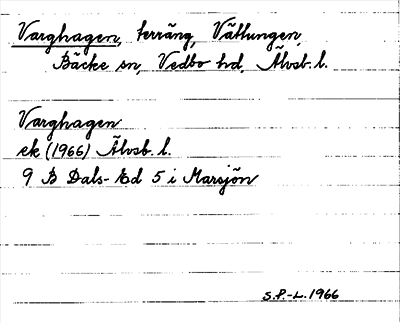 Varghagen, terräng, Vättungen,
Bäcke sn, Vedbo hd, Älvsb. l.
Varghagen
ek (1966) Älvsb. l.
9 B Dals-Ed 5 i Marsjön
S.P.-L. 1966